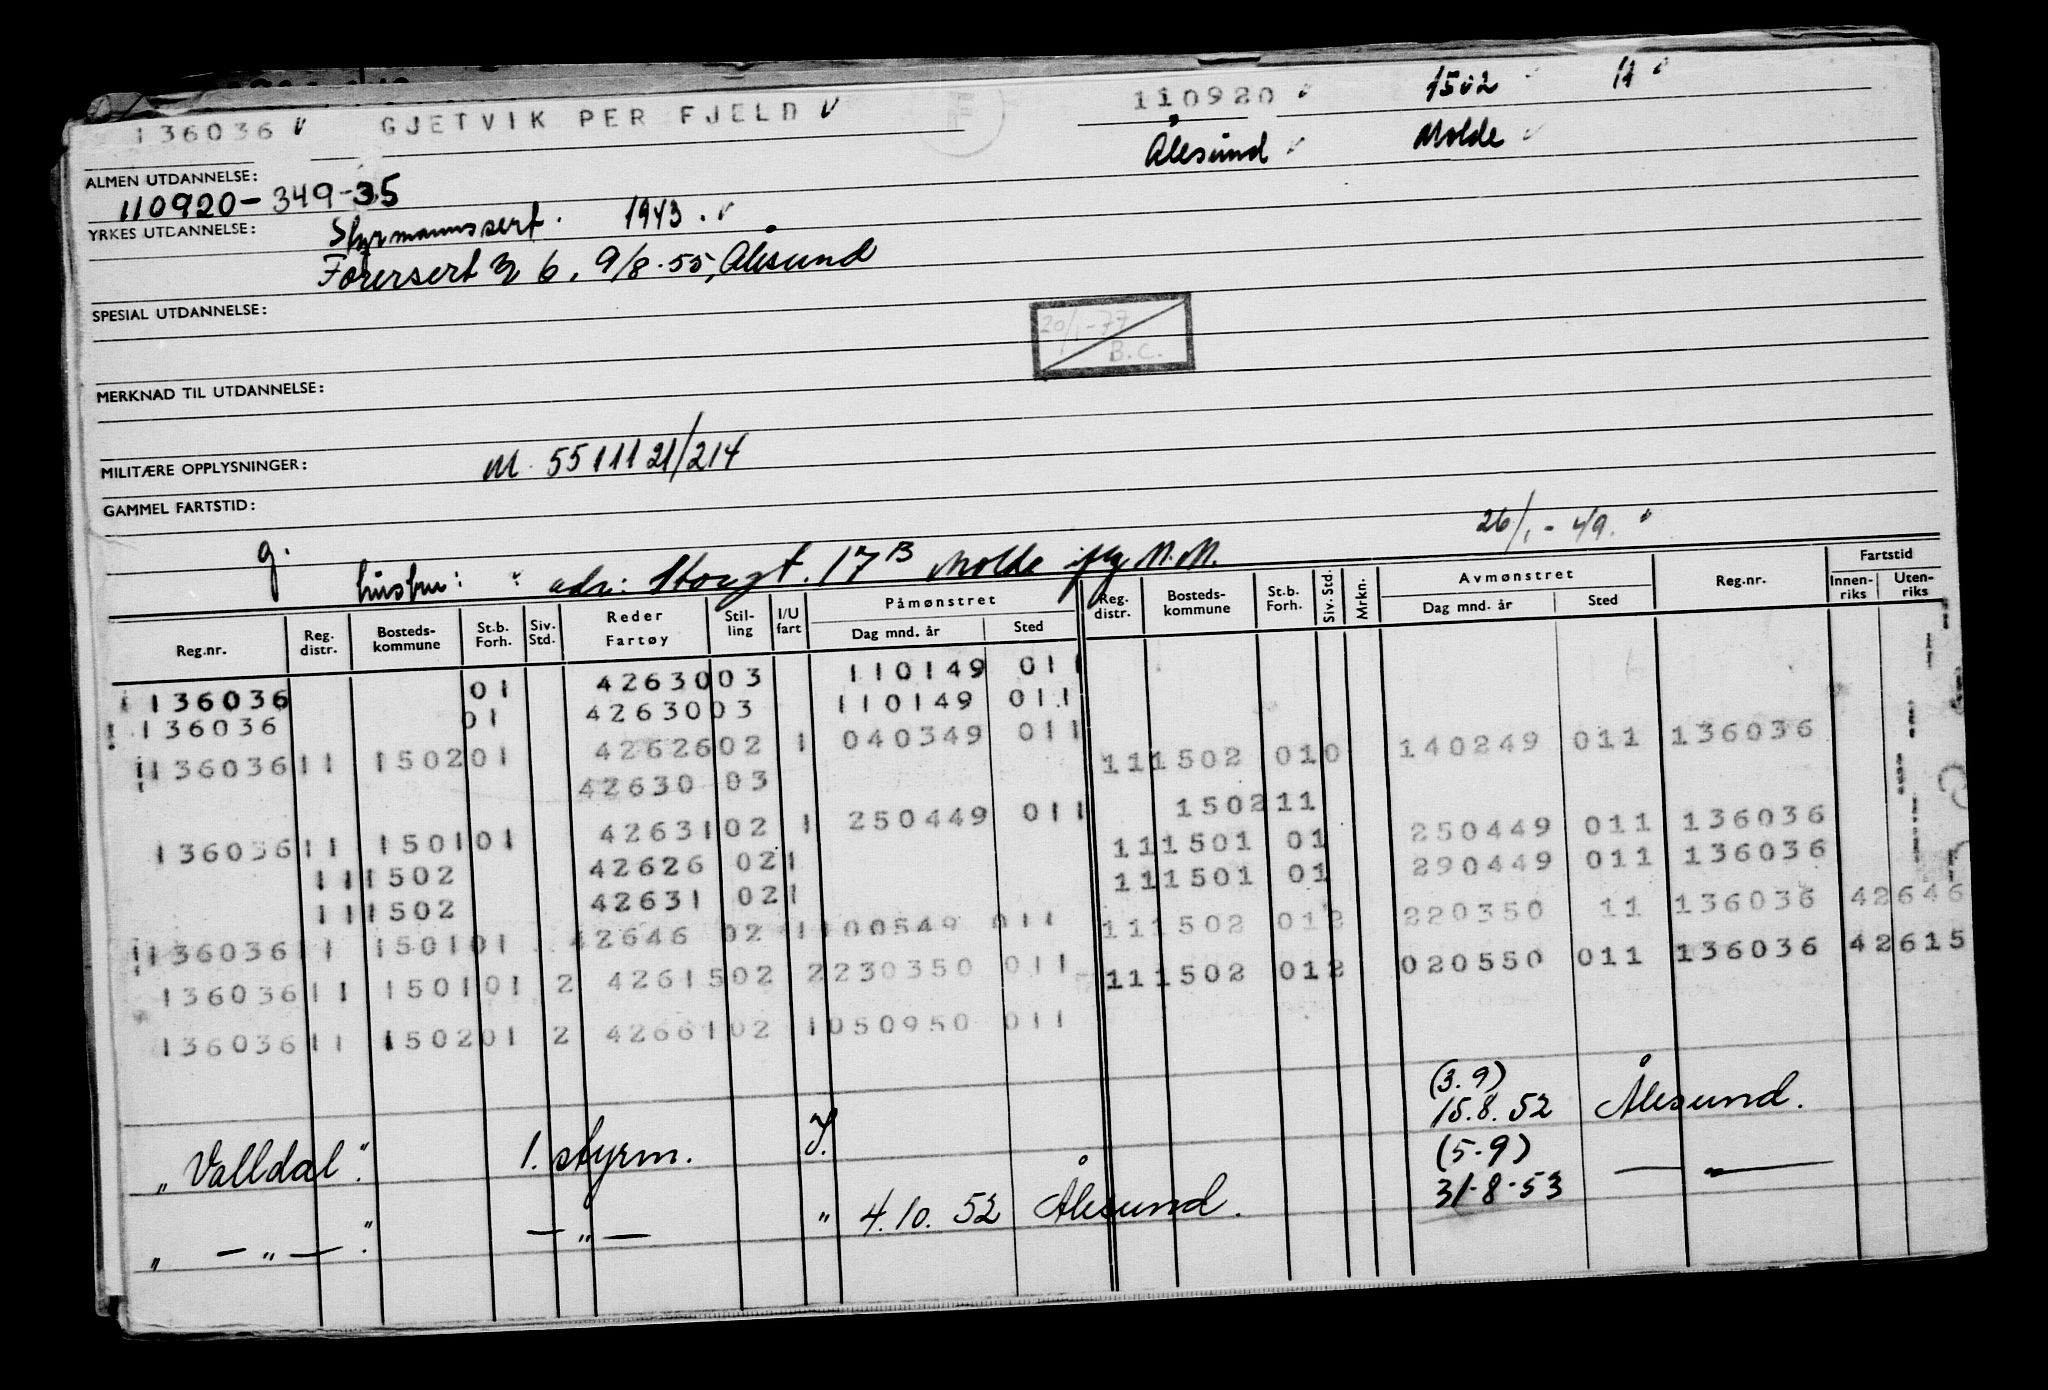 136036 GJETVIK PER FJELD 110920 1502 11
Ålesund Molde
ALMEN UTDANNELSE:
110920-349-35
YRKES UTDANNELSE: Styrmannssert. 1943.
Førersert 6, 9/8-55, Ålesund
SPESIAL UTDANNELSE:
20/1-77
B.C.
MERKNAD TIL UTDANNELSE:
MILITÆRE OPPLYSNINGER: M. 5511121/214
GAMMEL FARTSTID:
26/1-49.
g. hustru: adr: Storgt. 17B Molde M.M.
Reg.nr. Reg. distr. Bosteds-kommune St.b. Forh. Siv. Std. Reder Fartøy Stil-ling I/U fart Påmønstret Dag mnd. år Sted Reg. distr. Bosteds-kommune St.b. Forh. Siv. Std. Mrkn. Avmønstret Dag mnd. år Sted Reg.nr. Fartstid Innen-riks Uten-riks
136036 01 42630 03 110149 011
136036 01 42630 03 110149 011
136036 11 1502 01 42626 02 1 040349 011 11 1502 010 140249 011 136036
42630 03 1502 11
136036 11 1501 01 42631 02 1 250449 011 11 1501 01 250449 011 136036
11 1502 42626 02 1 11 1501 01 290449 011 136036
11 1502 42631 02 1
136036 11 1501 01 42646 02 1 100549 011 11 1502 012 220350 11 136036 42646
136036 11 1501 01 2 42615 02 2 230350 011 11 1502 012 020550 011 136036 42615
136036 11 1502 01 2 42661 02 1 050950 011
(3.9)
"Valldal". 1. styrm. I. 15.8.52 Ålesund.
(5-9)
" — " — ". — " — " 4.10.52 Ålesund. 31-8-53 — " —